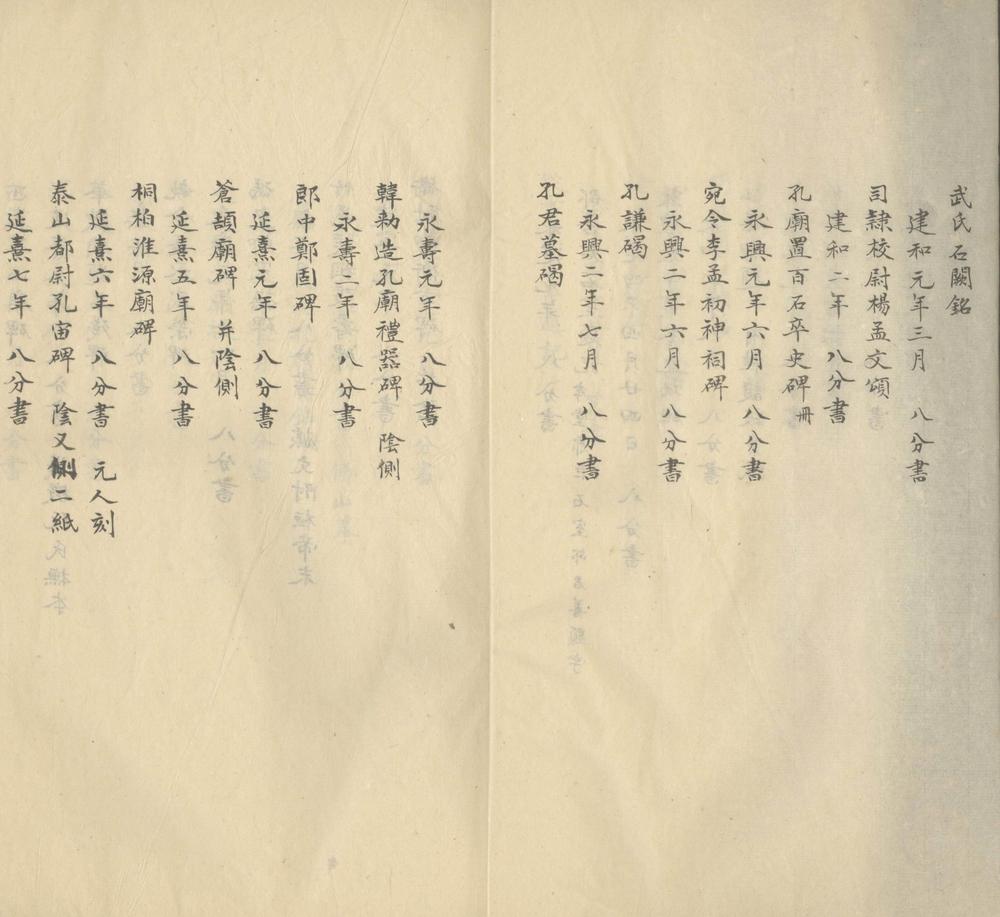 武氏石闕銘
建和元年三月 八分書
司隸校尉楊孟文頌
建和二年 八分書
孔廟置百石卒史碑冊
永興元年六月 八分書
宛令李孟初神祠碑
永興二年六月 八分書
孔謙碣
永興二年七月 八分書
孔君墓碣
永壽元年 八分書
韓勑造孔廟禮器碑 陰側
永壽二年 八分書
郎中鄭固碑
延熹元年 八分書
蒼頡廟碑 并陰側
延熹五年 八分書
桐柏淮源廟碑
延熹六年 八分書 元人刻
泰山都尉孔宙碑 陰又側二紙
延熹七年 八分書